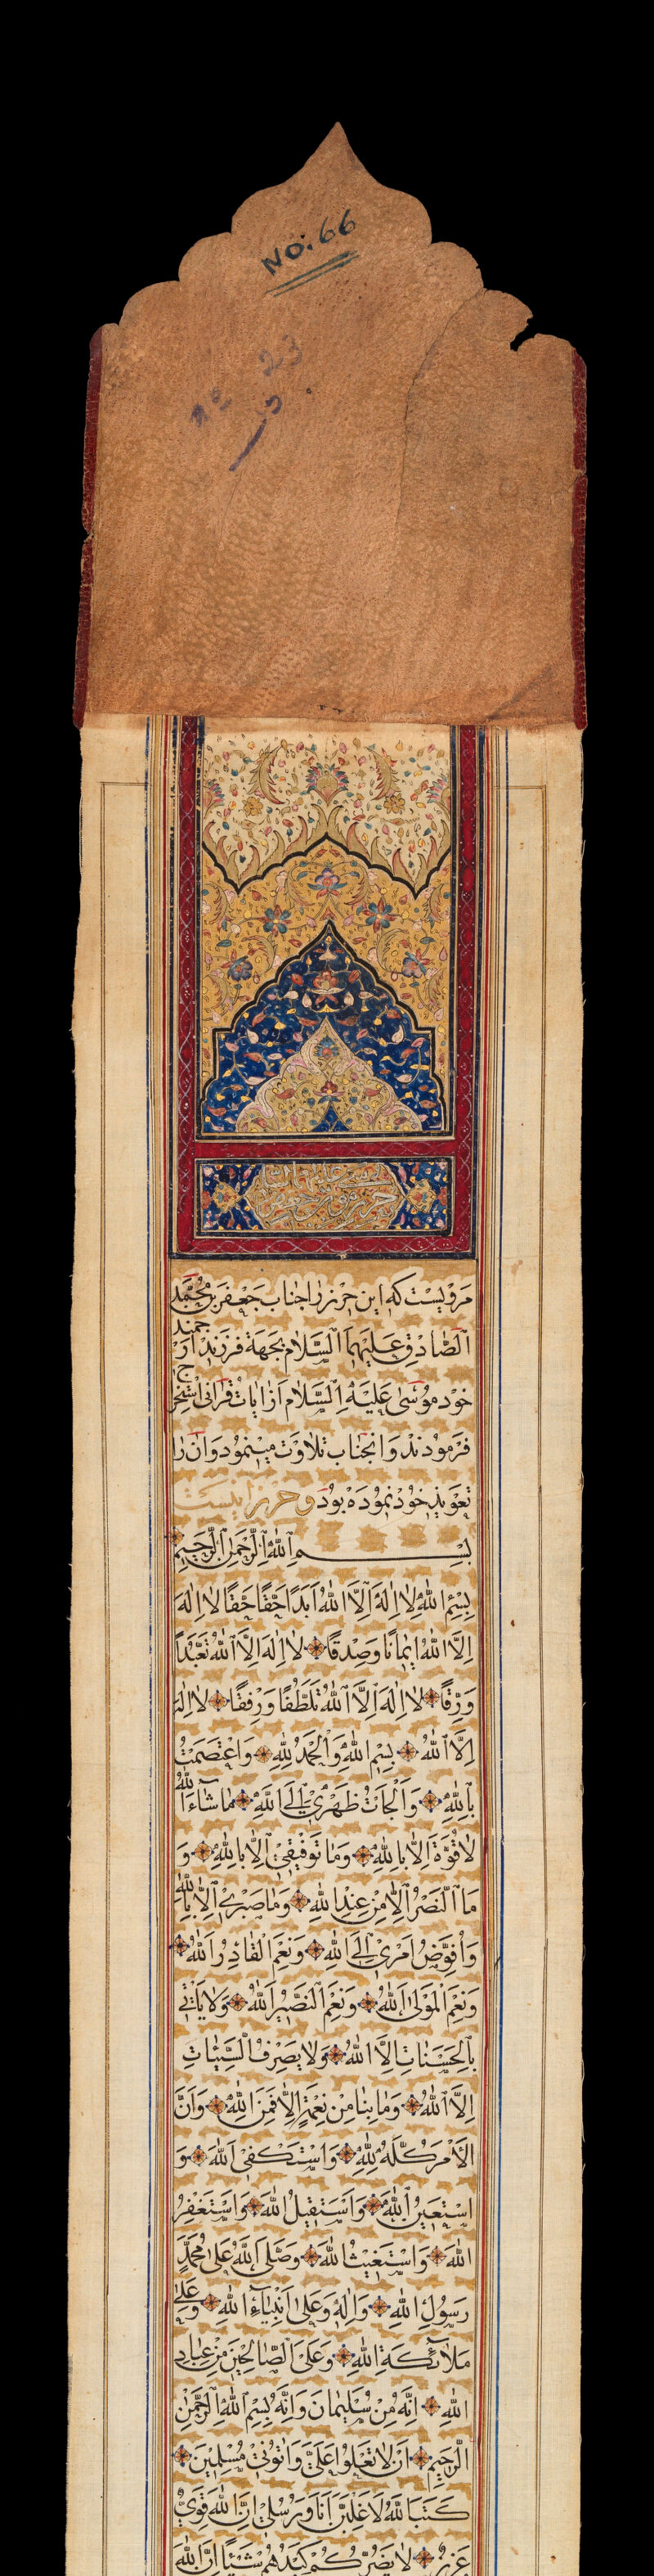 NO. 66
23
حرز موسی بن جعفر علیهما السلام
مرویست که این حرز را جناب جَعفَر بن مُحَمَّد
اَلصّادِق عَلَیهِمَا السَّلام بجَهة فرزَند ارجمند
خود موُسَی عَلَیهِ السَّلام اَز ایات قرانی استخراج
فرمودند وَانجناب تلاوَت میِنموُد وَان را
تعویذ خود نموده بوُد و حرز اینست
بِسْمِ اللهِ الرَّحْمنِ الرَّحیمِ
بِسْمِ اللهِ لا اِلهَ اِلَّا اللهُ اَبَدًا حَقًّا حَقًّا لا اِلهَ
اِلَّا اللهُ ایمانًا وَصِدقًا لا اِلهَ اِلَّا اللهُ تَعَبُّدًا
وَرِقًّا لا اِلهَ اِلَّا اللهُ تَلَطُّفًا وَرِفقًا لا اِلهَ
اِلَّا اللهُ بِسْمِ اللهِ وَالْحَمدُ لِلّهِ وَاعْتَصَمتُ
بِاللهِ وَاَلْجَاْتُ ظَهْری اِلَی اللهِ ما شآءَ اللهُ
لا قُوَّةَ اِلّا بِاللهِ وَما تَوفیقی اِلّا بِاللهِ وَ
مَا النَّصْرُ اِلّا مِن عِندِ اللهِ وَما صَبْری اِلّا بِاللهِ
وَاُفَوِّضُ اَمری اِلَی اللهِ وَنِعْمَ الْقادِرُ اللهُ
وَنِعْمَ الْمَولَی اللهُ وَنِعْمَ النَّصیرُ اللهُ وَلا یَاْتی
بِالْحَسَناتِ اِلَّا اللهُ وَلا یَصْرِفُ السَّیِّئاتِ
اِلَّا اللهُ وَما بِنا مِن نِعْمَةٍ اِلّا فَمِنَ اللهِ وَاَنَّ
الْاَمْرَ کُلَّهُ لِلّهِ وَاَسْتَکْفِی اللهَ وَ
اَسْتَعینُ اللهَ وَاَسْتَقیلُ اللهَ وَاَسْتَغْفِرُ
اللهَ وَاَسْتَغیثُ اللهَ وَصَلَّی اللهُ عَلی مُحَمَّدٍ
رَسوُلِ اللهِ وَالِهِ وَعَلی اَنْبِیآءِ اللهِ وَعَلی
مَلآئِکَةِ اللهِ وَعَلَی الصّالِحینَ مِن عِبادِ
اللهِ اِنَّهُ مِنْ سُلَیْمانَ وَاِنَّهُ بِسْمِ اللهِ الرَّحْمنِ
الرَّحیمِ اَنْ لا تَعْلُوا عَلَیَّ وَاْتوُنی مُسْلِمینَ
کَتَبَ اللهُ لَاَغْلِبَنَّ اَنَا وَرُسُلی اِنَّ اللهَ قَوِیٌّ
عَزیزٌ لا یَضُرُّکُمْ کَیْدُهُمْ شَیْئًا اِنَّ اللهَ